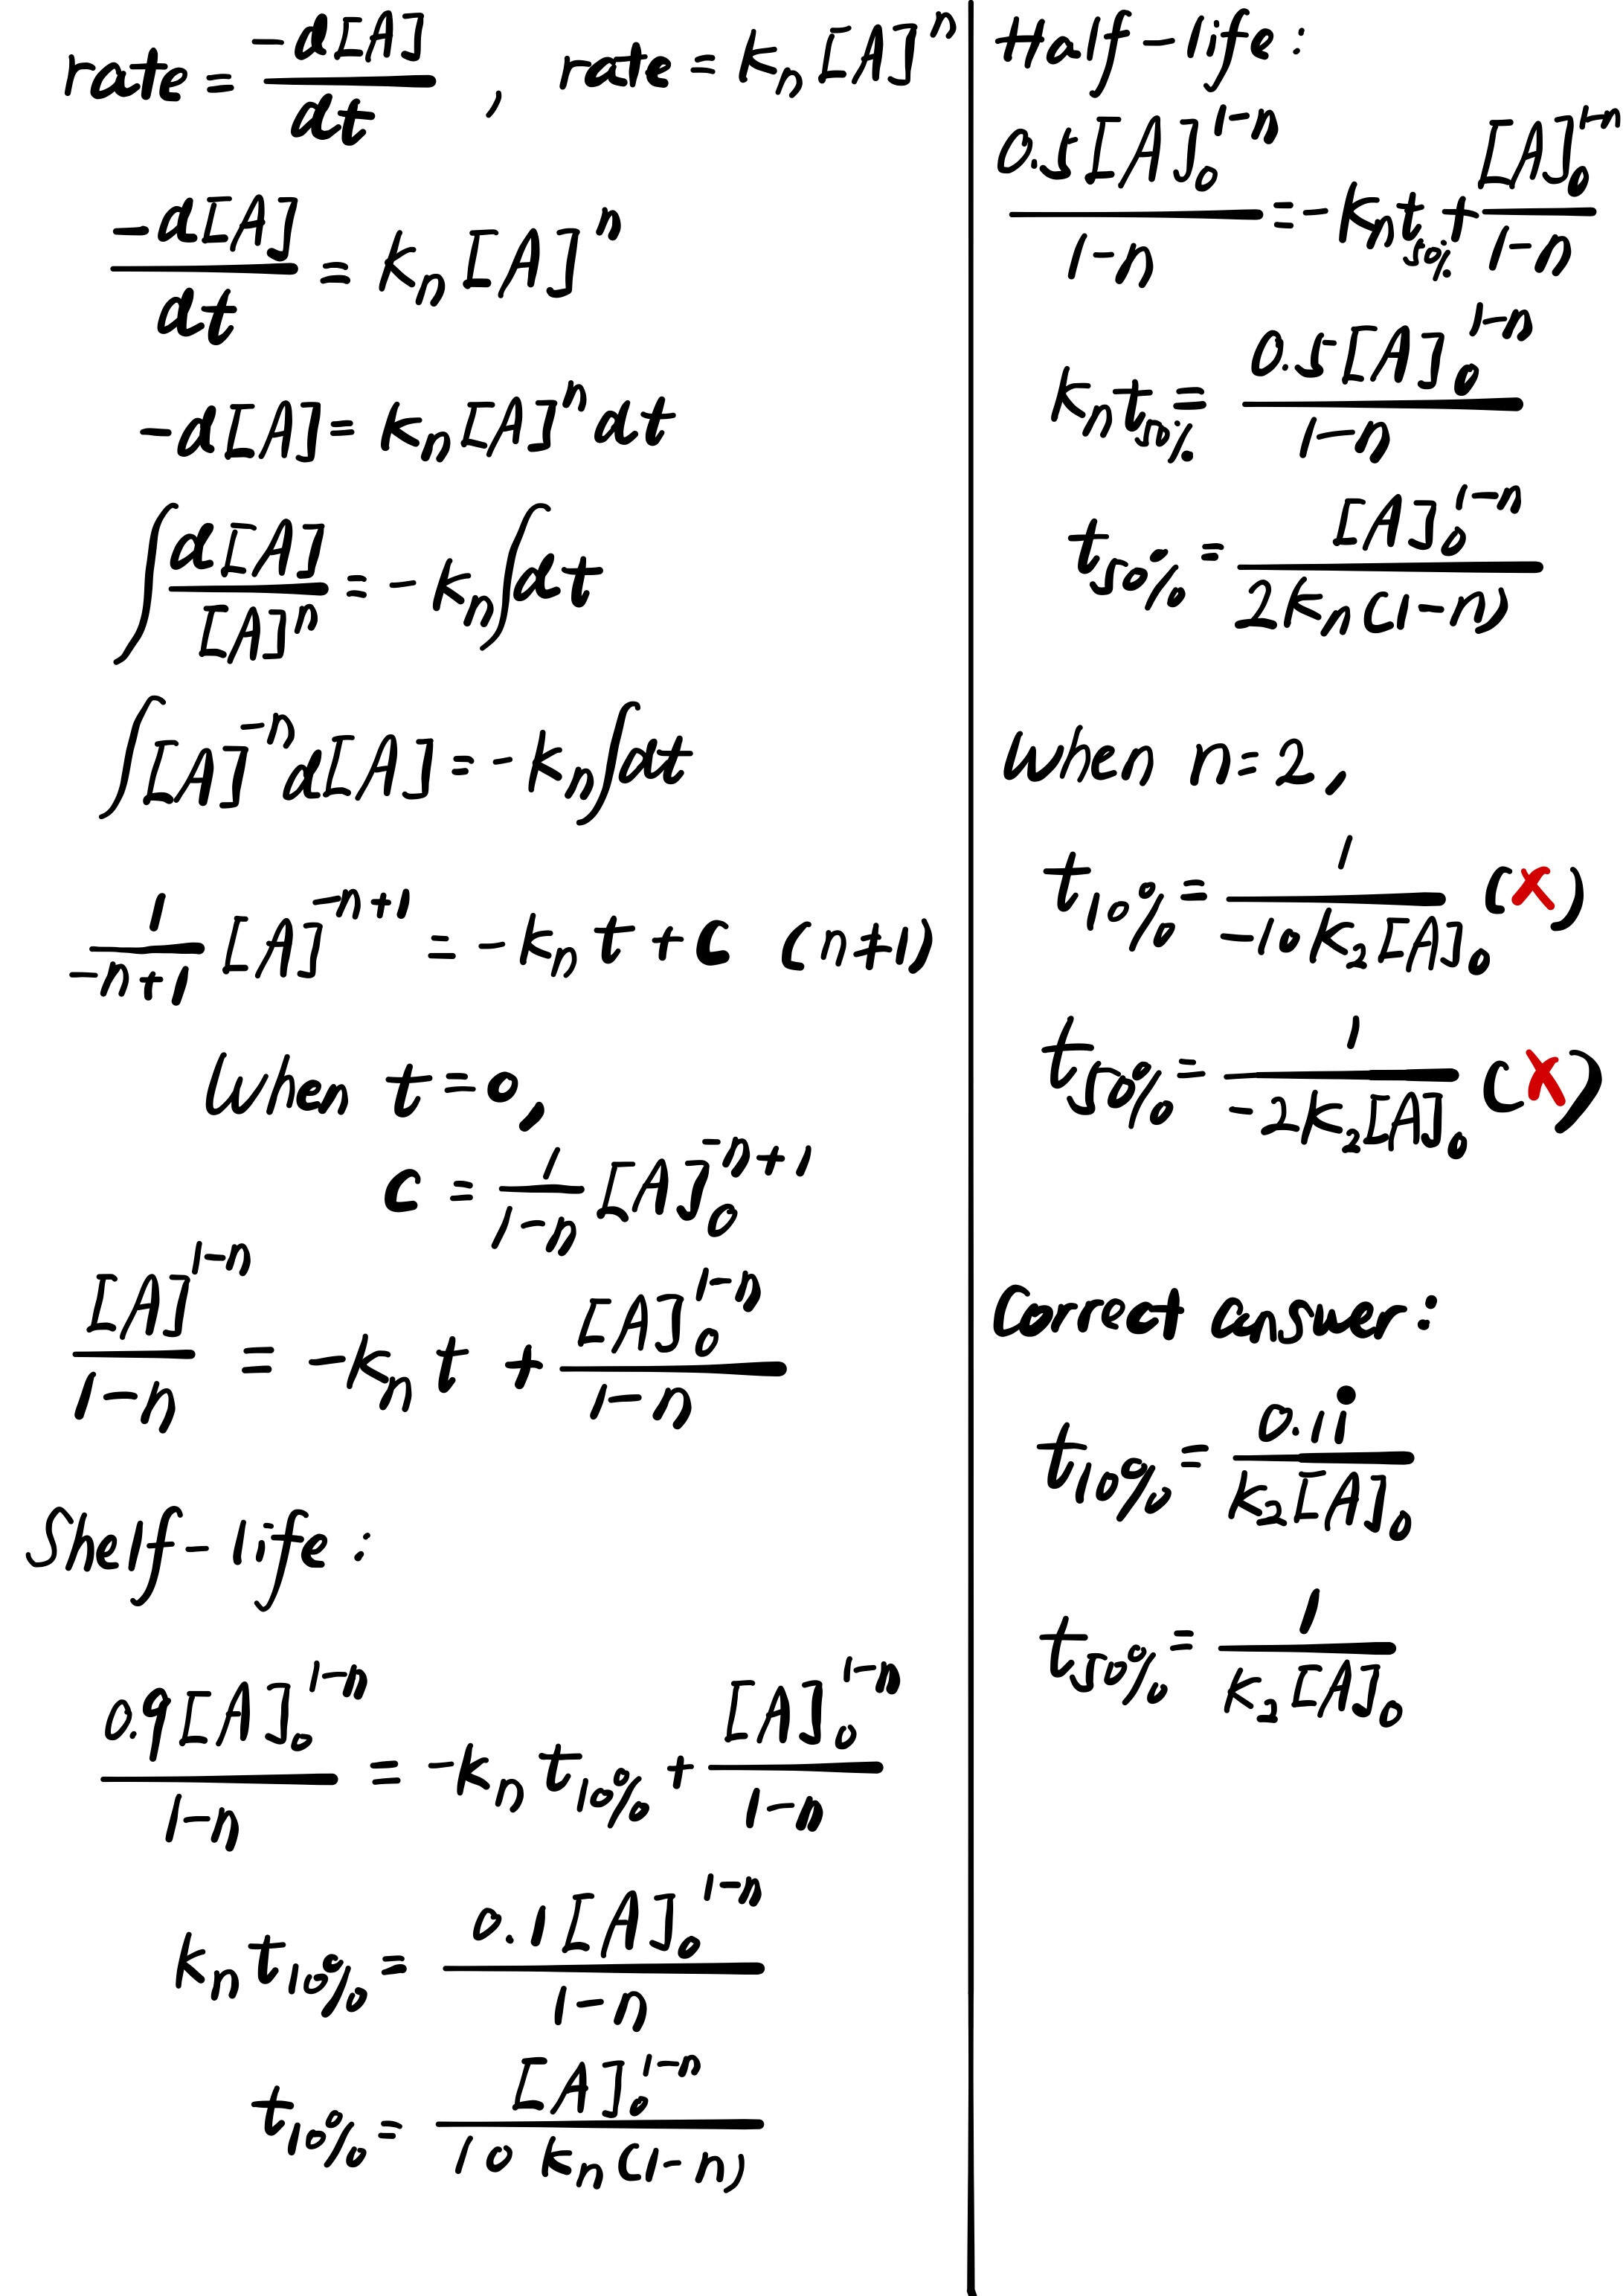 rate = -d[A]/dt , rate = kₙ[A]ⁿ
-d[A]/dt = kₙ[A]ⁿ
-d[A] = kₙ[A]ⁿ dt
∫ d[A]/[A]ⁿ = -kₙ ∫ dt
∫ [A]⁻ⁿ d[A] = -kₙ ∫ dt
1/(-n+1) [A]⁻ⁿ⁺¹ = -kₙ t + C (n≠1)
When t=0,
C = 1/(1-n) [A]₀⁻ⁿ⁺¹
[A]¹⁻ⁿ/(1-n) = -kₙ t + [A]₀¹⁻ⁿ/(1-n)
Shelf-life :
0.9[A]₀¹⁻ⁿ/(1-n) = -kₙ t₁₀% + [A]₀¹⁻ⁿ/(1-n)
kₙ t₁₀% = 0.1[A]₀¹⁻ⁿ/(1-n)
t₁₀% = [A]₀¹⁻ⁿ/(10 kₙ(1-n))
Half-life :
0.5[A]₀¹⁻ⁿ/(1-n) = -kₙ t₅₀% + [A]₀¹⁻ⁿ/(1-n)
kₙ t₅₀% = 0.5[A]₀¹⁻ⁿ/(1-n)
t₅₀% = [A]₀¹⁻ⁿ/(2kₙ(1-n))
When n=2,
t₁₀% = 1/(-10k₂[A]₀) (x)
t₅₀% = 1/(-2k₂[A]₀) (x)
Correct answer:
t₁₀% = 0.1i̇/(k₂[A]₀)
t₅₀% = 1/(k₂[A]₀)